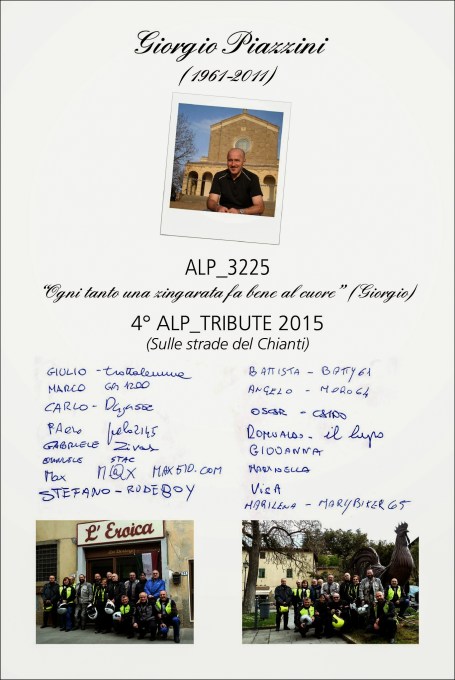 Giorgio Piazzini
(1961-2011)
ALP_3225
"Ogni tanto una zingarata fa bene al cuore" (Giorgio)
4° ALP_TRIBUTE 2015
(Sulle strade del Chianti)
GIULIO - trottalemme
MARCO GS 1200
CARLO -
PAOLO pelo2145
GABRIELE
STAC
Max M@X MAX510.COM
STEFANO - RUDEBOY
BATTISTA - BATTY61
ANGELO - MORO64
OSCAR -
ROMUALDO - il lupo
GIOVANNA
MARINELLA
VIEA
MARILENA - MARYBIKER65
L'Eroica